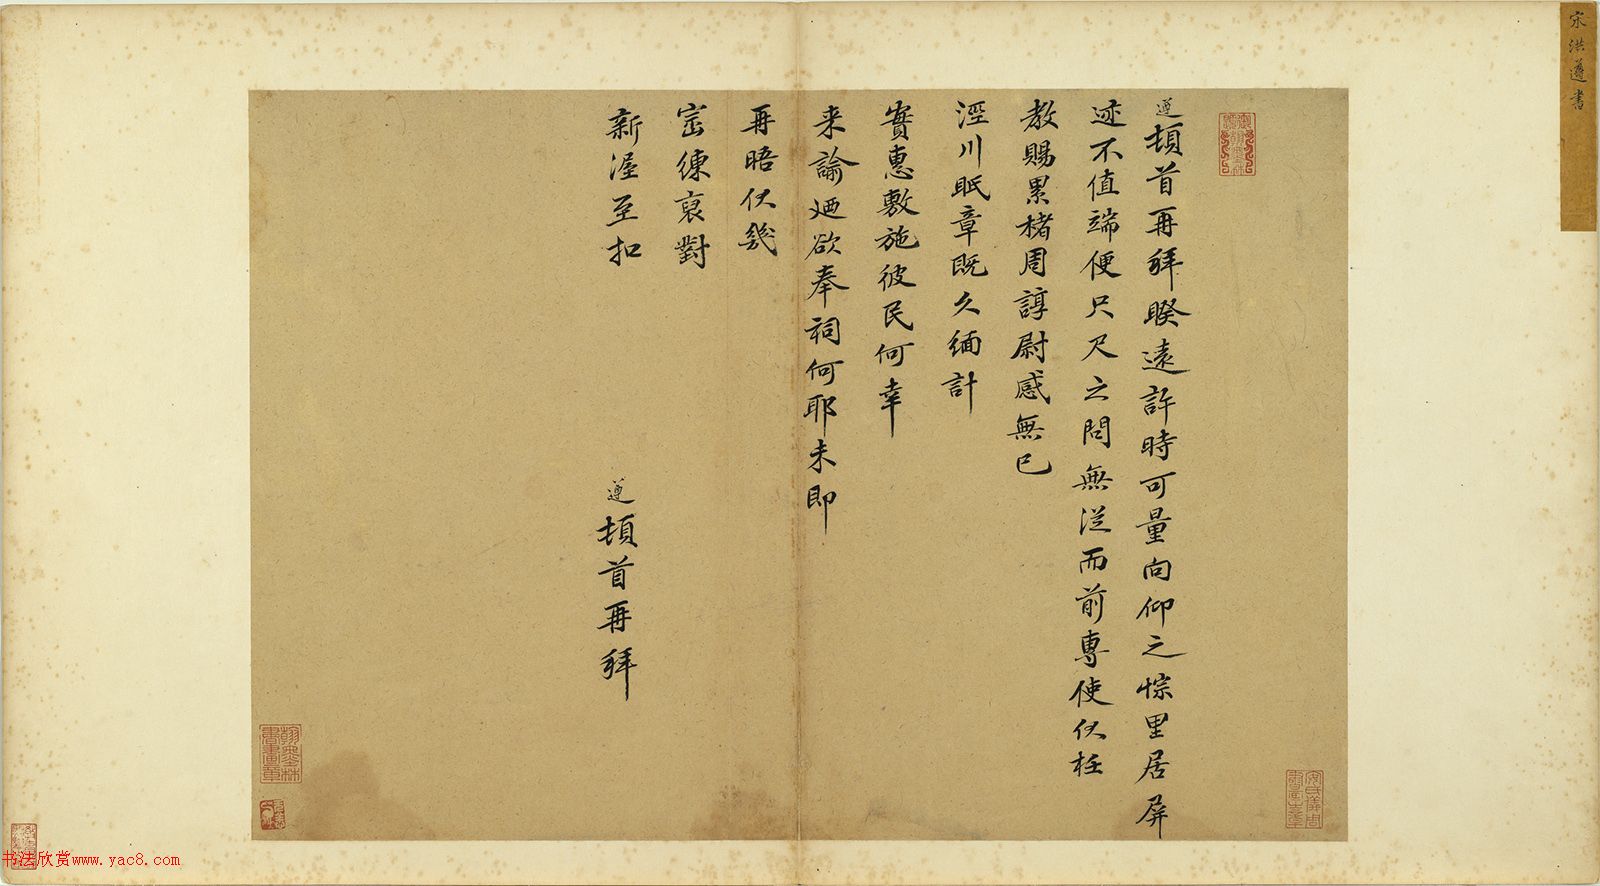 宋洪遵書
遵頓首再拜睽遠許時可量向仰之悰里居屏
迹不值端便尺尺之問無從而前專使伏枉
教賜累楮周諄尉感無已
涇川眂章既久緬計
實惠敷施彼民何幸
来諭廼欲奉祠何耶未即
再晤伏幾
崈練裒對
新渥至扣
遵頓首再拜
书法欣赏www.yac8.com